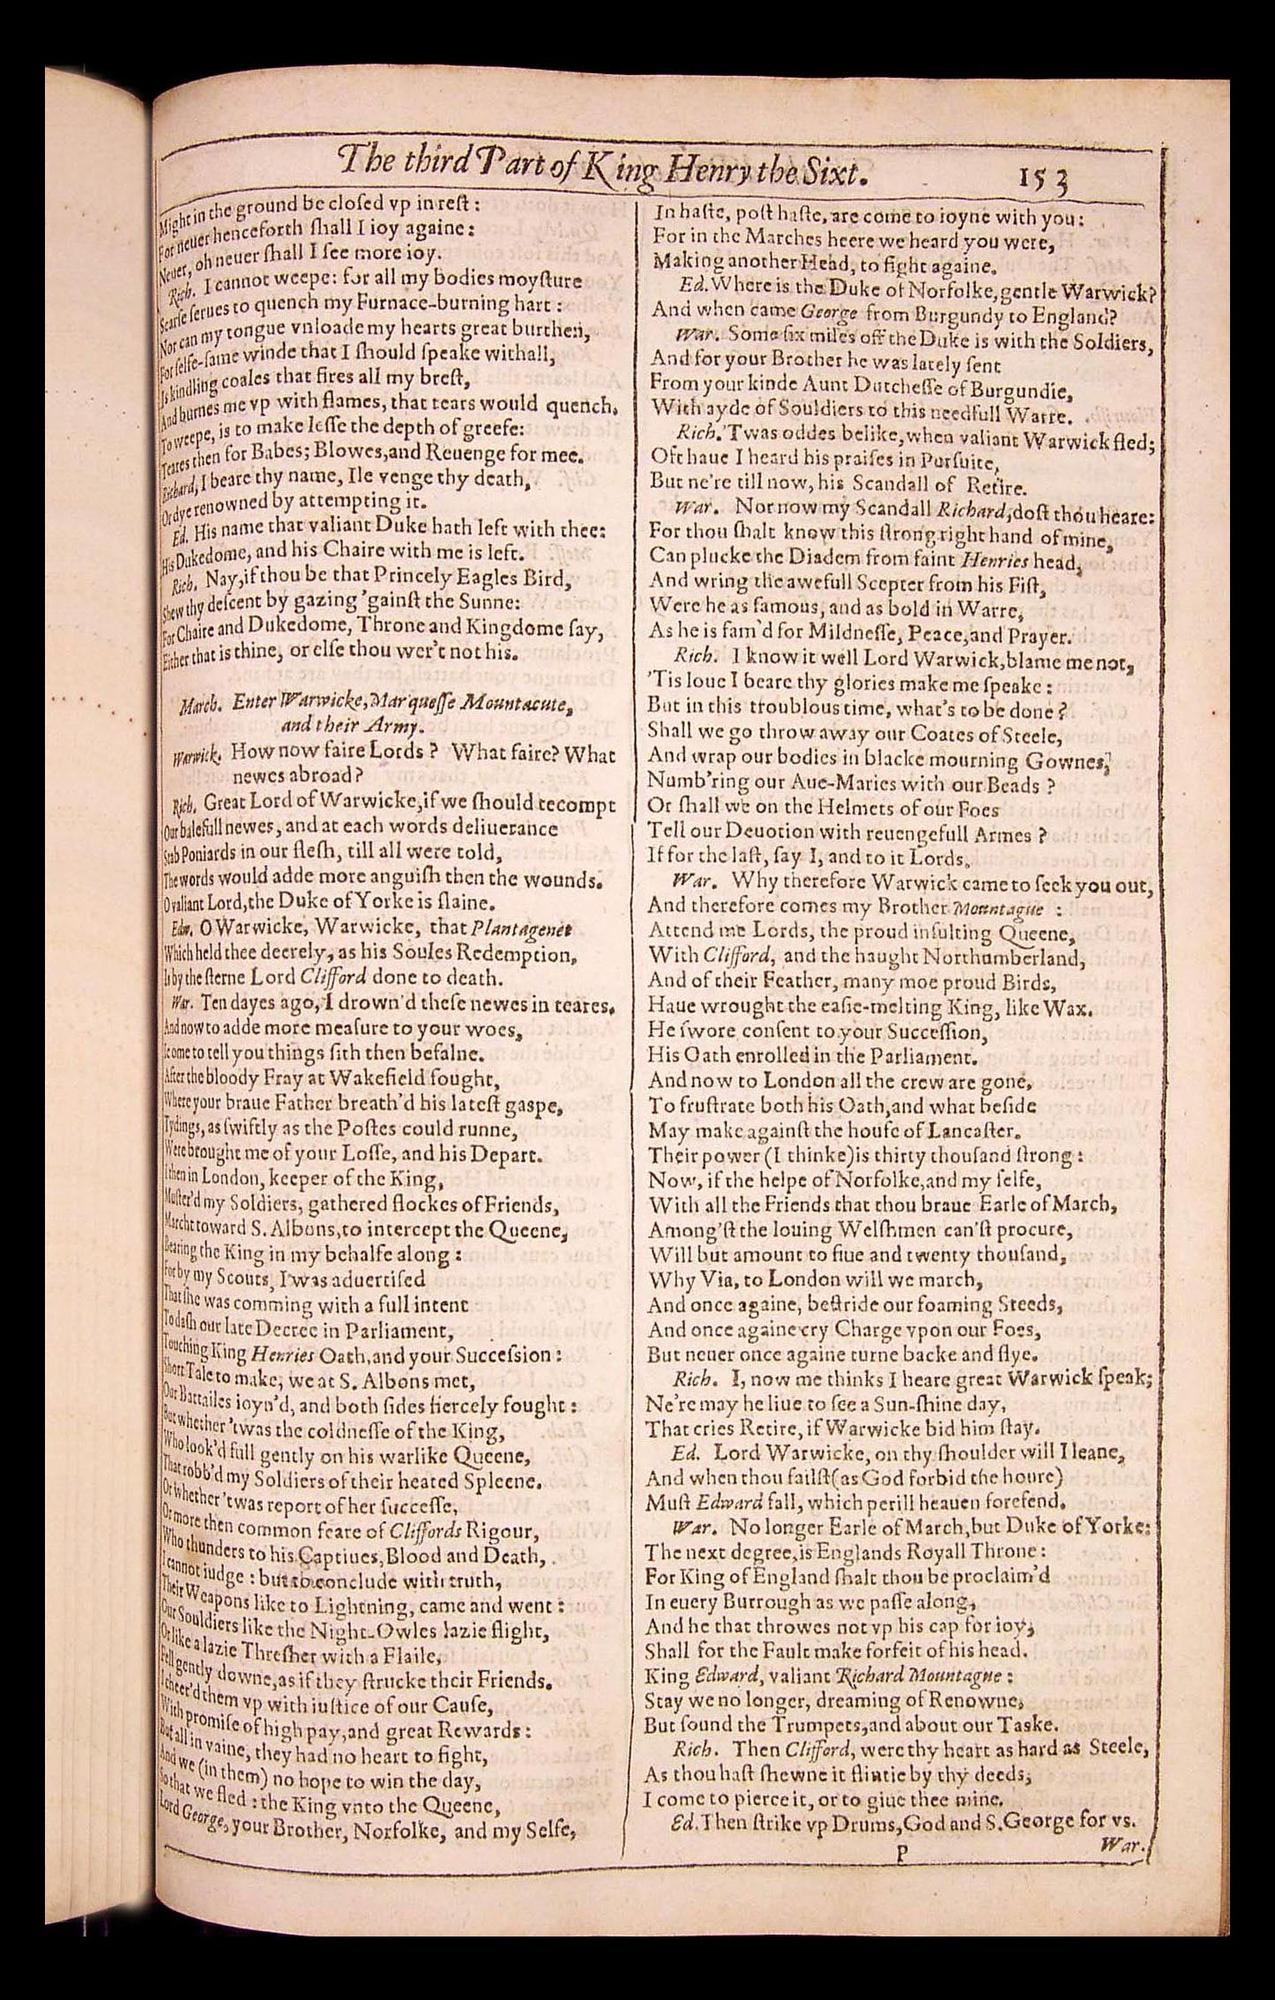 The third Part of King Henry the Sixt. 153
Might in the ground be closed vp in rest:
For neuer henceforth shall I ioy againe:
Neuer, oh neuer shall I see more ioy.
Rich. I cannot weepe: for all my bodies moysture
Scarse serues to quench my Furnace-burning hart:
Nor can my tongue vnloade my hearts great burthen,
For selfe-same winde that I should speake withall,
Is kindling coales that fires all my brest,
And burnes me vp with flames, that tears would quench.
To weepe, is to make lesse the depth of greefe:
Teares then for Babes; Blowes, and Reuenge for mee.
Richard, I beare thy name, Ile venge thy death,
Or dye renowned by attempting it.
Ed. His name that valiant Duke hath left with thee:
His Dukedome, and his Chaire with me is left.
Rich. Nay, if thou be that Princely Eagles Bird,
Shew thy descent by gazing 'gainst the Sunne:
For Chaire and Dukedome, Throne and Kingdome say,
Either that is thine, or else thou wer't not his.
March. Enter Warwicke, Marquesse Mountacute,
and their Army.
Warwick. How now faire Lords? What faire? What
newes abroad?
Rich. Great Lord of Warwicke, if we should recompt
Our balefull newes, and at each words deliuerance
Stab Poniards in our flesh, till all were told,
The words would adde more anguish then the wounds.
O valiant Lord, the Duke of Yorke is slaine.
Edw. O Warwicke, Warwicke, that Plantagenet
Which held thee deerely, as his Soules Redemption,
Is by the sterne Lord Clifford done to death.
War. Ten dayes ago, I drown'd these newes in teares.
And now to adde more measure to your woes,
I come to tell you things sith then befalne.
After the bloody Fray at Wakefield fought,
Where your braue Father breath'd his latest gaspe,
Tydings, as swiftly as the Postes could runne,
Were brought me of your Losse, and his Depart.
I then in London, keeper of the King,
Muster'd my Soldiers, gathered flockes of Friends,
Marcht toward S. Albons, to intercept the Queene,
Bearing the King in my behalfe along:
For by my Scouts, I was aduertised
That she was comming with a full intent
To dash our late Decree in Parliament,
Touching King Henries Oath, and your Succession:
Short Tale to make, we at S. Albons met,
Our Battailes ioyn'd, and both sides fiercely fought:
But whether 'twas the coldnesse of the King,
Who look'd full gently on his warlike Queene,
That robb'd my Soldiers of their heated Spleene.
Or whether 'twas report of her successe,
Or more then common feare of Cliffords Rigour,
Who thunders to his Captiues, Blood and Death,
I cannot iudge: but to conclude with truth,
Their Weapons like to Lightning, came and went:
Our Souldiers like the Night-Owles lazie flight,
Or like a lazie Thresher with a Flaile,
Fell gently downe, as if they strucke their Friends.
I cheer'd them vp with iustice of our Cause,
With promise of high pay, and great Rewards:
But all in vaine, they had no heart to fight,
And we (in them) no hope to win the day,
So that we fled: the King vnto the Queene,
Lord George, your Brother, Norfolke, and my Selfe,
In haste, post haste, are come to ioyne with you:
For in the Marches heere we heard you were,
Making another Head, to fight againe.
Ed. Where is the Duke of Norfolke, gentle Warwick?
And when came George from Burgundy to England?
War. Some six miles off the Duke is with the Soldiers,
And for your Brother he was lately sent
From your kinde Aunt Dutchesse of Burgundie,
With ayde of Souldiers to this needfull Warre.
Rich. 'Twas oddes belike, when valiant Warwick fled;
Oft haue I heard his praises in Pursuite,
But ne're till now, his Scandall of Retire.
War. Nor now my Scandall Richard, dost thou heare:
For thou shalt know this strong right hand of mine,
Can plucke the Diadem from faint Henries head,
And wring the awefull Scepter from his Fist,
Were he as famous, and as bold in Warre,
As he is fam'd for Mildnesse, Peace, and Prayer.
Rich. I know it well Lord Warwick, blame me not,
'Tis loue I beare thy glories make me speake:
But in this troublous time, what's to be done?
Shall we go throw away our Coates of Steele,
And wrap our bodies in blacke mourning Gownes,
Numb'ring our Aue-Maries with our Beads?
Or shall we on the Helmets of our Foes
Tell our Deuotion with reuengefull Armes?
If for the last, say I, and to it Lords.
War. Why therefore Warwick came to seek you out,
And therefore comes my Brother Mountague:
Attend me Lords, the proud insulting Queene,
With Clifford, and the haught Northumberland,
And of their Feather, many moe proud Birds,
Haue wrought the easie-melting King, like Wax.
He swore consent to your Succession,
His Oath enrolled in the Parliament.
And now to London all the crew are gone,
To frustrate both his Oath, and what beside
May make against the house of Lancaster.
Their power (I thinke) is thirty thousand strong:
Now, if the helpe of Norfolke, and my selfe,
With all the Friends that thou braue Earle of March,
Among'st the louing Welshmen can'st procure,
Will but amount to fiue and twenty thousand,
Why Via, to London will we march,
And once againe, bestride our foaming Steeds,
And once againe cry Charge vpon our Foes,
But neuer once againe turne backe and flye.
Rich. I, now me thinks I heare great Warwick speak;
Ne're may he liue to see a Sun-shine day,
That cries Retire, if Warwicke bid him stay.
Ed. Lord Warwicke, on thy shoulder will I leane,
And when thou failst (as God forbid the houre)
Must Edward fall, which perill heauen forefend.
War. No longer Earle of March, but Duke of Yorke:
The next degree, is Englands Royall Throne:
For King of England shalt thou be proclaim'd
In euery Burrough as we passe along,
And he that throwes not vp his cap for ioy,
Shall for the Fault make forfeit of his head.
King Edward, valiant Richard Mountague:
Stay we no longer, dreaming of Renowne,
But sound the Trumpets, and about our Taske.
Rich. Then Clifford, were thy heart as hard as Steele,
As thou hast shewne it flintie by thy deeds,
I come to pierce it, or to giue thee mine.
Ed. Then strike vp Drums, God and S. George for vs.
P War.